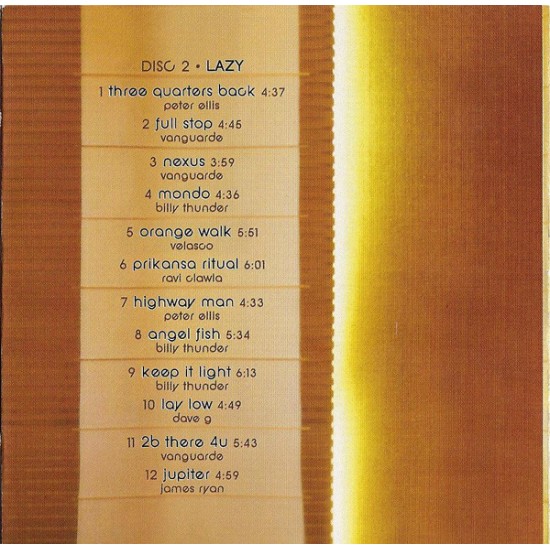 DISC 2 • LAZY
1 three quarters back 4:37
peter ellis
2 full stop 4:45
vanguarde
3 nexus 3:59
vanguarde
4 mondo 4:36
billy thunder
5 orange walk 5:51
velasco
6 prikansa ritual 6:01
ravi clawla
7 highway man 4:33
peter ellis
8 angel fish 5:34
billy thunder
9 keep it light 6:13
billy thunder
10 lay low 4:49
dave g
11 2b there 4u 5:43
vanguarde
12 jupiter 4:59
james ryan